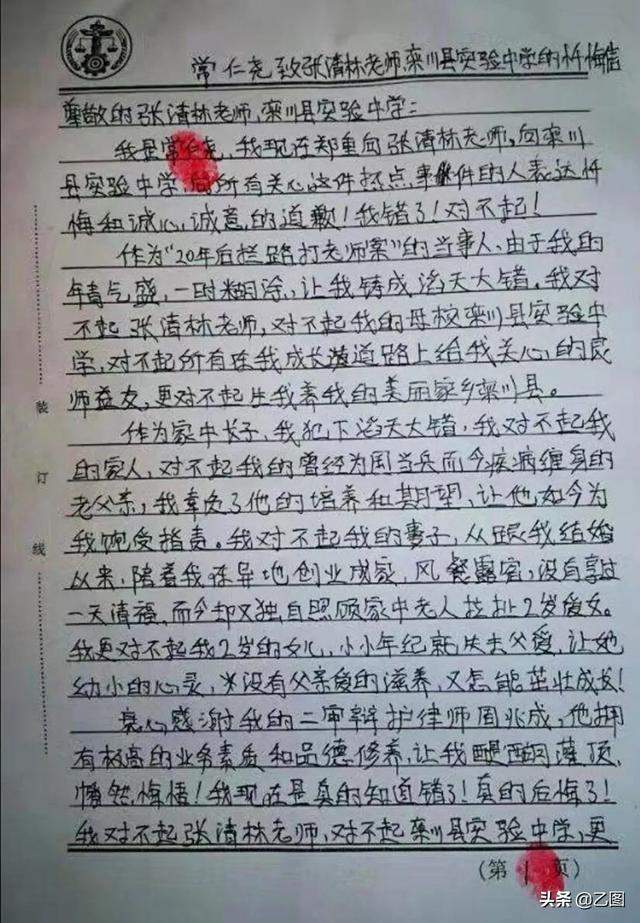 常仁尧致张清林老师,栾川县实验中学的忏悔信
尊敬的张清林老师,栾川县实验中学:
我是常仁尧,我现在郑重向张清林老师,向栾川
县实验中学,向所有关心这件事件的人表达忏
悔和诚心,诚意,的道歉!我错了!对不起!
作为"20年后拦路打老师案"的当事人,由于我的
年青气盛,一时糊涂,让我铸成滔天大错。我对
不起张清林老师,对不起我的母校栾川县实验中
学,对不起所有在我成长道路上给我关心,的良
师益友,更对不起生我养我的美丽家乡栾川县。
作为家中长子,我犯下滔天大错,我对不起我
的家人,对不起我的曾经为国当兵而今疾病缠身的
老父亲,我辜负了他的培养和期望,让他如今为
我饱受指责。我对不起我的妻子,从跟我结婚
以来,陪着我在异地创业成家,风餐露宿,没有享过
一天清福,而今却又独自照顾家中老人拉扯2岁爱女。
我更对不起我2岁的女儿,小小年纪就失去父爱,让她
幼小的心灵,没有父亲爱的滋养,又怎能茁壮成长!
衷心感谢我的二审辩护律师周兆成,他拥
有极高的业务素质和品德修养,让我醍醐灌顶,
幡然悔悟!我现在是真的知道错了!真的后悔了!
我对不起张清林老师,对不起栾川县实验中学,更
(第1页)
装
订
线
头条 @乙图